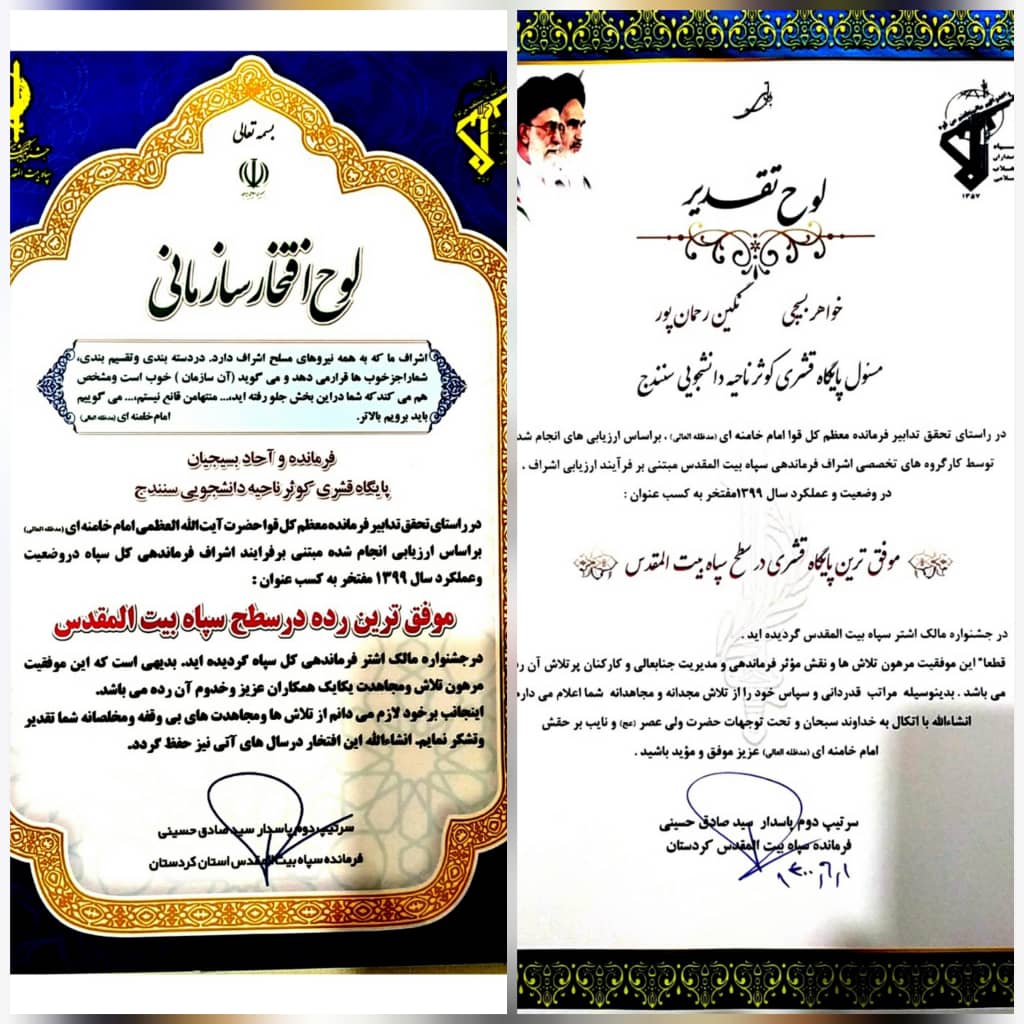 بسمه تعالی
لوح افتخار سازمانی
اشراف ما که به همه نیروهای مسلح اشراف دارد. دردسته بندی وتقسیم بندی،
شماراجزخوب ها قرارمی دهد و می گوید (آن سازمان ) خوب است ومشخص
هم می کندکه شما دراین بخش جلو رفته اید،... منتهامن قانع نیستم،... می گوییم
باید برویم بالاتر. امام خامنه ای (مدظله العالی)
فرمانده و آحاد بسیجیان
پایگاه قشری کوثر ناحیه دانشجویی سنندج
در راستای تحقق تدابیر فرمانده معظم کل قوا حضرت آیت الله العظمی امام خامنه ای (مدظله العالی)
براساس ارزیابی انجام شده مبتنی برفرایند اشراف فرماندهی کل سپاه دروضعیت
وعملکرد سال ۱۳۹۹ مفتخر به کسب عنوان :
موفق ترین رده در سطح سپاه بیت المقدس
درجشنواره مالک اشتر فرماندهی کل سپاه گردیده اید. بدیهی است که این موفقیت
مرهون تلاش ومجاهدت یکایک همکاران عزیز وخدوم آن رده می باشد.
اینجانب برخود لازم می دانم از تلاش ها ومجاهدت های بی وقفه ومخلصانه شما تقدیر
وتشکر نمایم. انشاءالله این افتخار درسال های آتی نیز حفظ گردد.
سرتیپ دوم پاسدار سید صادق حسینی
فرمانده سپاه بیت المقدس استان کردستان
لوح تقدیر
خواهر بسیجی نگین رحمان پور
مسئول پایگاه قشری کوثر ناحیه دانشجویی سنندج
در راستای تحقق تدابیر فرمانده معظم کل قوا امام خامنه ای (مدظله العالی) ، براساس ارزیابی های انجام شد
توسط کارگروه های تخصصی اشراف فرماندهی سپاه بیت المقدس مبتنی بر فرآیند ارزیابی اشراف .
در وضعیت و عملکرد سال ۱۳۹۹مفتخر به کسب عنوان :
موفق ترین پایگاه قشری در سطح سپاه بیت المقدس
در جشنواره مالک اشتر سپاه بیت المقدس گردیده اید .
قطعا" این موفقیت مرهون تلاش ها و نقش مؤثر فرماندهی و مدیریت جنابعالی و کارکنان پرتلاش آن رد
می باشد . بدینوسیله مراتب قدردانی و سپاس خود را از تلاش مجدانه و مجاهدانه شما اعلام می دارم
انشاءالله با اتکال به خداوند سبحان و تحت توجهات حضرت ولی عصر (عج) و نایب بر حقش
امام خامنه ای (مدظله العالی) عزیز موفق و مؤید باشید .
سرتیپ دوم پاسدار سید صادق حسینی
فرمانده سپاه بیت المقدس کردستان